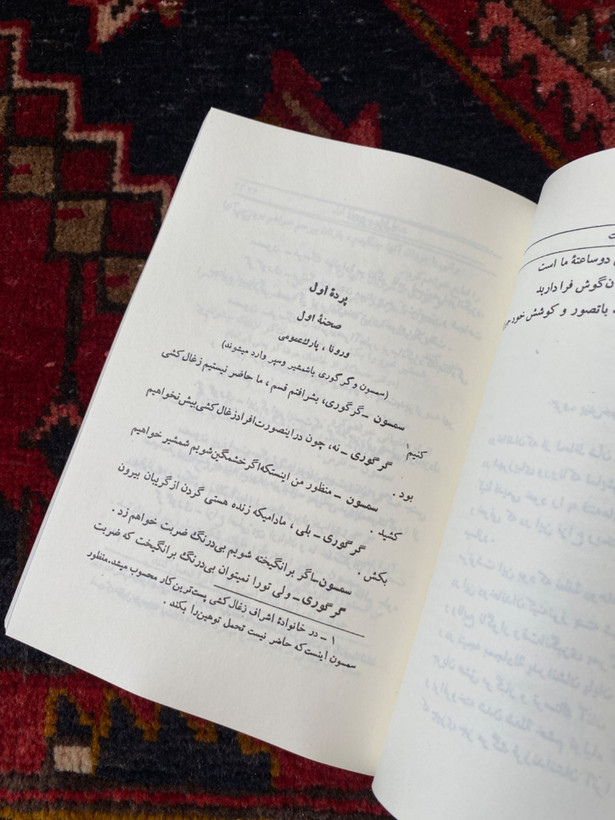 پردهٔ اول
صحنهٔ اول
ورونا ، پارک‌عمومی
(سمسون و گرگوری باشمشیر وسپر وارد میشوند)
سمسون ـ گرگوری، بشرافتم قسم ، ما حاضر نیستیم زغال کشی
کنیم۱
گرگوری ـ نه، چون دراینصورت افراد زغال کشی بیش نخواهیم
بود .
سمسون ـ منظور من اینستکه اگر خشمگین شویم شمشیر خواهیم
کشید .
گرگوری ـ بلی ، مادامیکه زنده هستی گردن از گریبان بیرون
بکش .
سمسون ـ اگر برانگیخته شویم بی‌درنگ ضربت خواهم زد .
گرگوری ـ ولی تورا نمیتوان بی‌درنگ برانگیخت که ضربت
۱ ـ در خانوادهٔ اشراف زغال کشی پست‌ترین کار محسوب میشد.منظور
سمسون اینست‌که حاضر نیست تحمل توهین‌را بکند .
دوساعتهٔ ما است
گوش فرا دارید
باتصور و کوشش خود